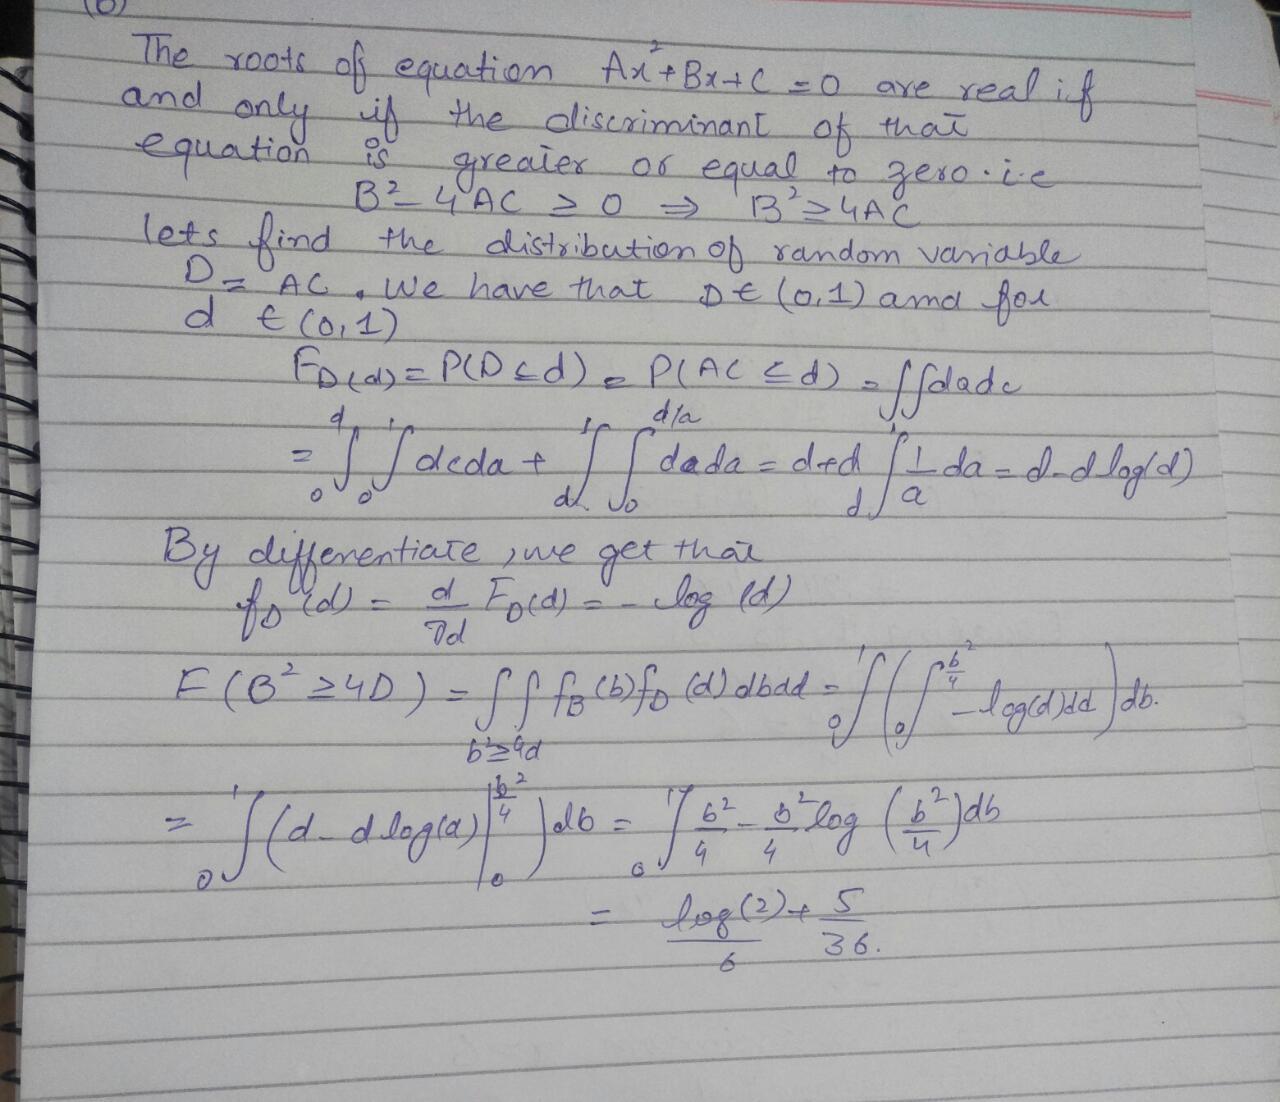 (b)
The roots of equation Ax²+Bx+C=0 are real if
and only if the discriminant of that
equation is greater or equal to zero. i.e
B²-4AC ≥ 0 ⇒ B²≥4AC
lets find the distribution of random variable
D = AC. We have that D∈(0,1) and for
d ∈(0,1)
F_D(d) = P(D≤d) = P(AC≤d) = ∫∫dadc
= ∫_0^d ∫_0^1 dcda + ∫_d^1 ∫_0^{d/a} dada = d+d ∫_d^1 1/a da = d-d log(d)
By differentiate, we get that
f_D(d) = d/∂d F_D(d) = - log(d)
F(B²≥4D) = ∫∫_{b²≥4d} f_B(b)f_D(d)dbdd = ∫_0^1 (∫_0^{b²/4} -log(d)dd) db.
= ∫_0^1 (d-d log(d)|_0^{b²/4}) db = ∫_0^1 b²/4 - b²/4 log(b²/4) db
= log(2)/6 + 5/36.